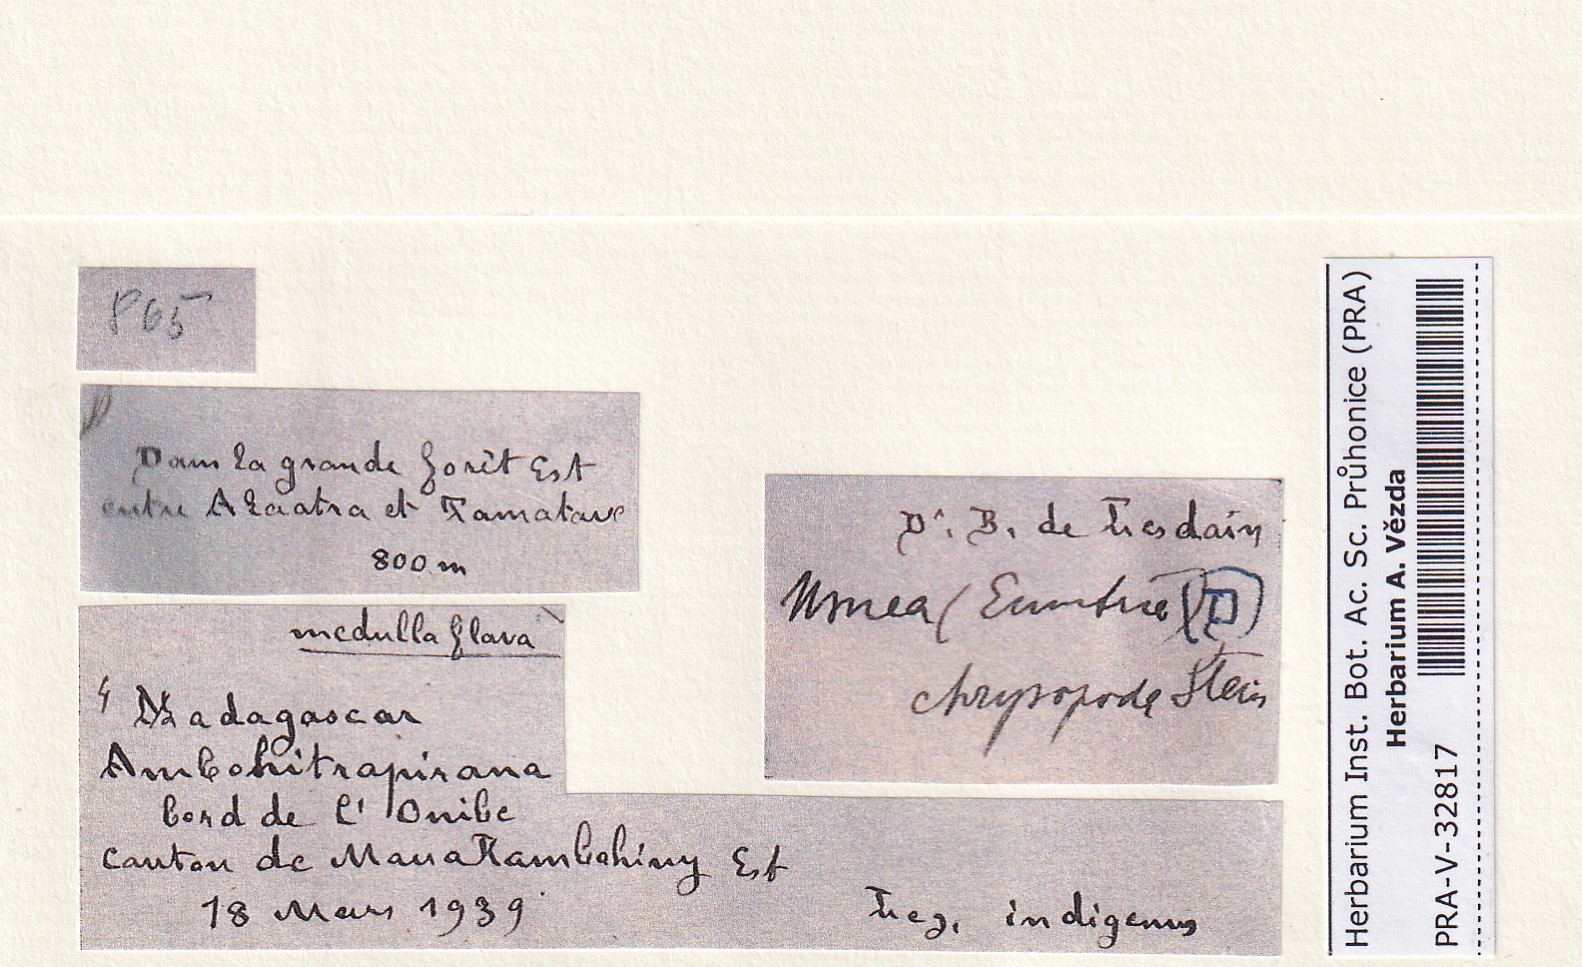 865
Dans la grande forêt Est
entre Alaotra et Tamatave
800 m
medulla flava
Madagascar
Ambohitrapirana
bord de l'Onibe
canton de Manakambahiny Est
18 Mars 1939
Leg. indigenus
Dr. B. de Lesdain
Usnea (Eumitria)
chrysopoda Stein
Herbarium Inst. Bot. Ac. Sc. Průhonice (PRA)
Herbarium A. Vězda
PRA-V-32817